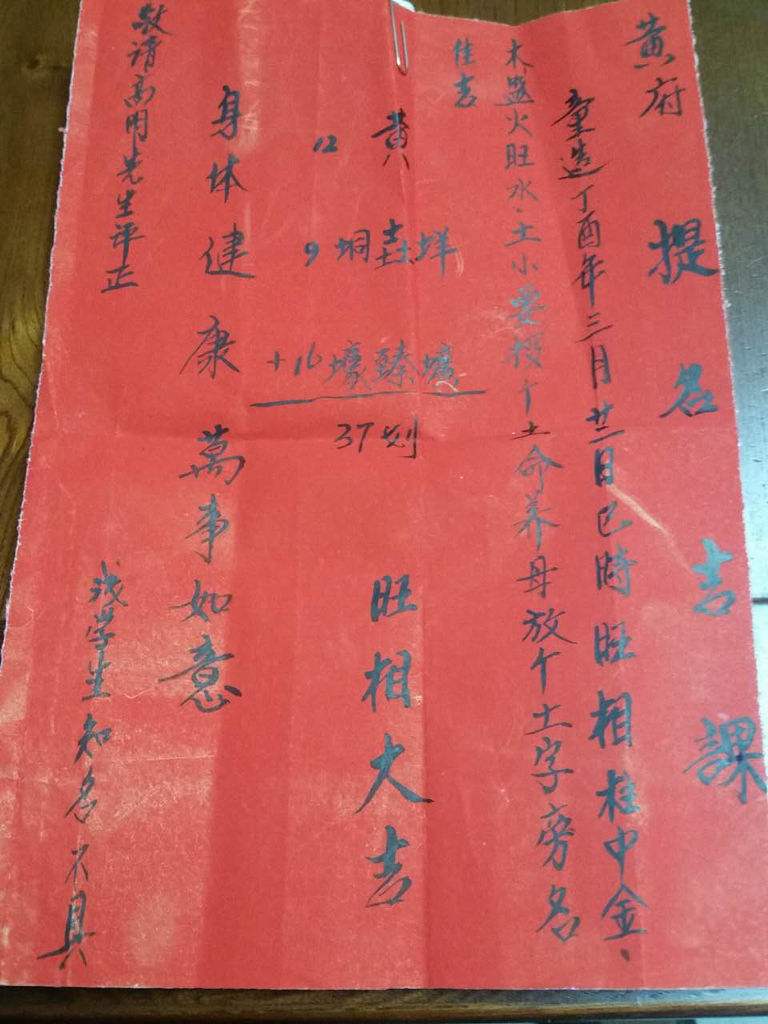 黄府
提名吉課
童造丁酉年三月廿二日巳時旺相柱中金、
木盛火旺水、土小要授个土命养母放个土字旁名
佳吉
12 黄
9 垌垚垟
+16 壤臻壙
37划
旺相大吉
身体健康萬事如意
敬请高明先生评正
浅学生知名不具